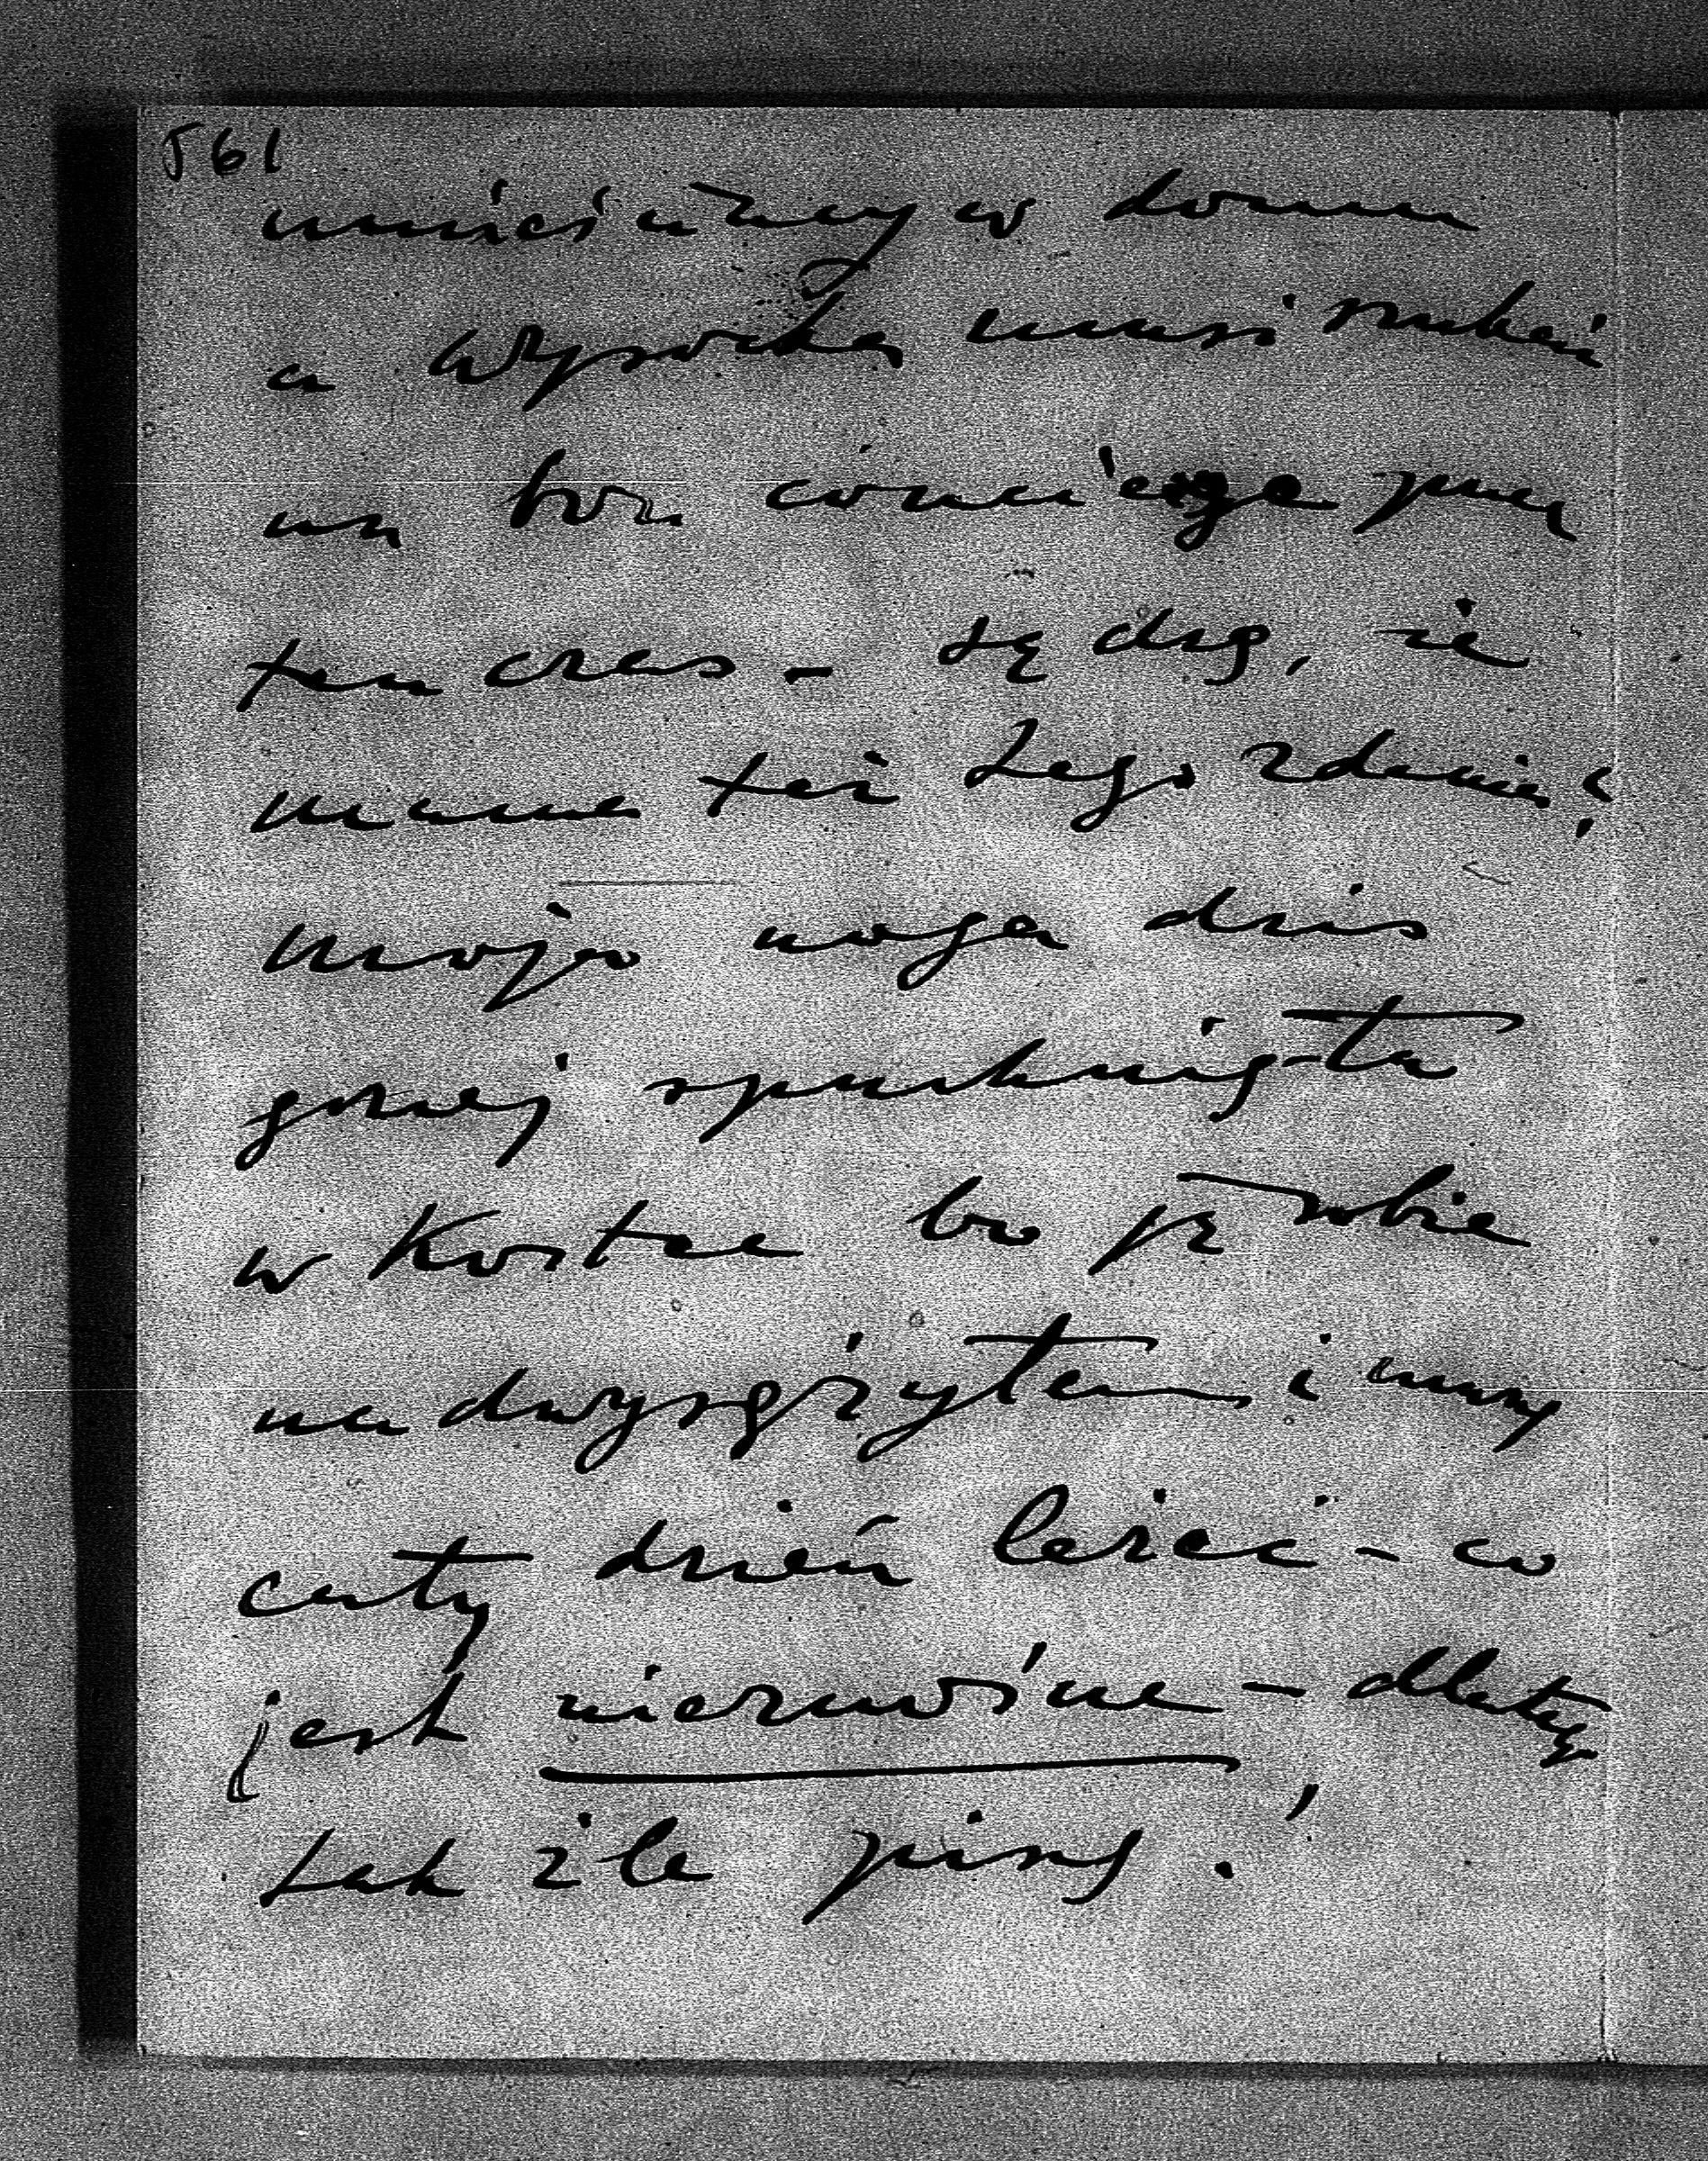 561
umieściłby w domu
a Wysocka musi szukać
un bon concierge przez
ten czas - sądzę, że
mama też tego zdania?
moja noga dziś
gorzej spuchnięta
w kostce bo ją robię
nadwyrężyłem i muszę
cały dzień leżeć - co
jest nieznośne - dlatego
tak źle piszę.